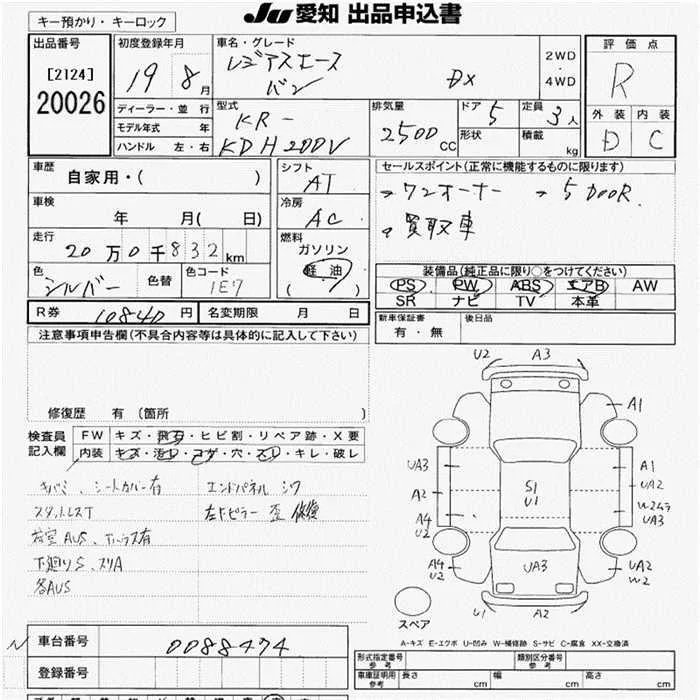 キー預かり・キーロック
JU 愛知 出品申込書
出品番号
[2124]
20026
初度登録年月
19 8月
車名・グレード
レジアスエース
バン DX
2WD
・
4WD
評価点
R
外装 内装
D C
ディーラー・並行
モデル年式 年
ハンドル 左・右
型式
KR-
KDH200V
排気量
2500 CC
ドア 5
形状
定員 3人
積載 kg
車歴
自家用・( )
車検
年 月( 日)
走行
20万0千832km
色
シルバー
色替
色コード
1E7
シフト
AT
冷房
AC
燃料
ガソリン
軽油
( )
セールスポイント(正常に機能するものに限ります)
→ワンオーナー →5DOOR.
→買取車
装備品(純正品に限り○をつけてください)
PS PW ABS エアB AW
SR ナビ TV 本革
R券 10840 円
名変期限 月 日
新車保証書
有・無
後日品
注意事項申告欄(不具合内容等は具体的に記入して下さい)
修復歴 有(箇所 )
検査員
記入欄
FW キズ・飛石・ヒビ割・リペア跡・X要
内装 キズ・汚レ・コゲ・穴・スレ・キレ・破レ
キバミ、シートカバー有 エンドパネル シワ
スタットレスT 左Fピラー 歪 修復
荷室AUS、
下廻りS、スリA
各AUS
U2 A3
A1
UA3
A2
A4
U2
A1
UA2
W2ムラ
UA3
S1
U1
UA3
A4
U2
UA2
W2
U1 A2
スペア
A-キズ E-エクボ U-凹み W-補修跡 S-サビ C-腐食 XX-交換済
車台番号 0088474
登録番号
形式指定番号
参考
類別区分番号
参考
車庫証明用
参考
長さ cm
幅 cm
高さ cm